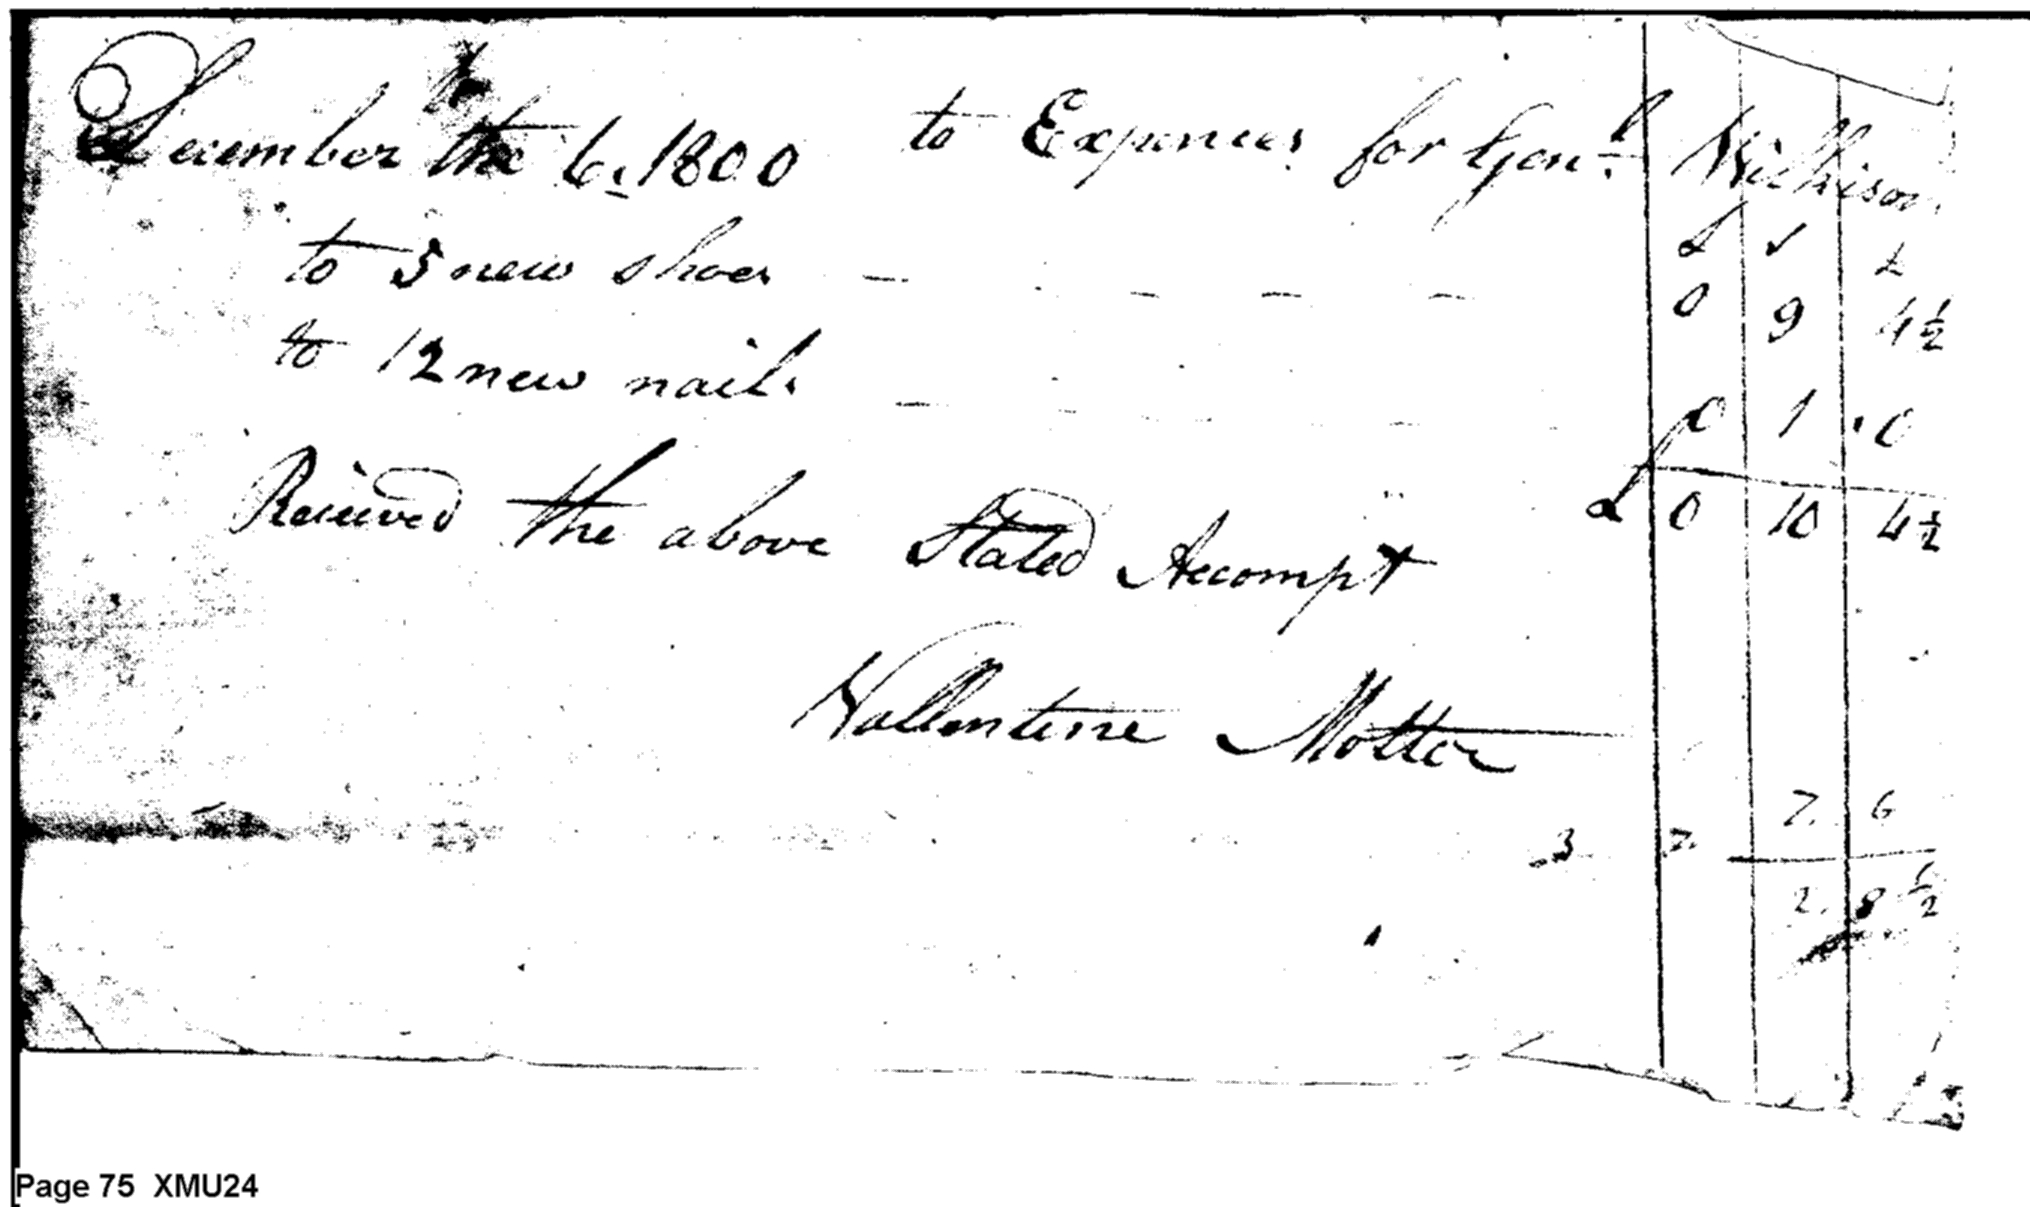 December the 6. 1800 to Expences for Genl. Wilkison
£ s d
to 5 new shoes — — — — 0 9 4½
to 12 new nails — — 0 1 0
£ 0 10 4½
Received the above Stated Accompt
Vallentine Motter
7. 6
3 7.
2. 8½
Page 75 XMU24